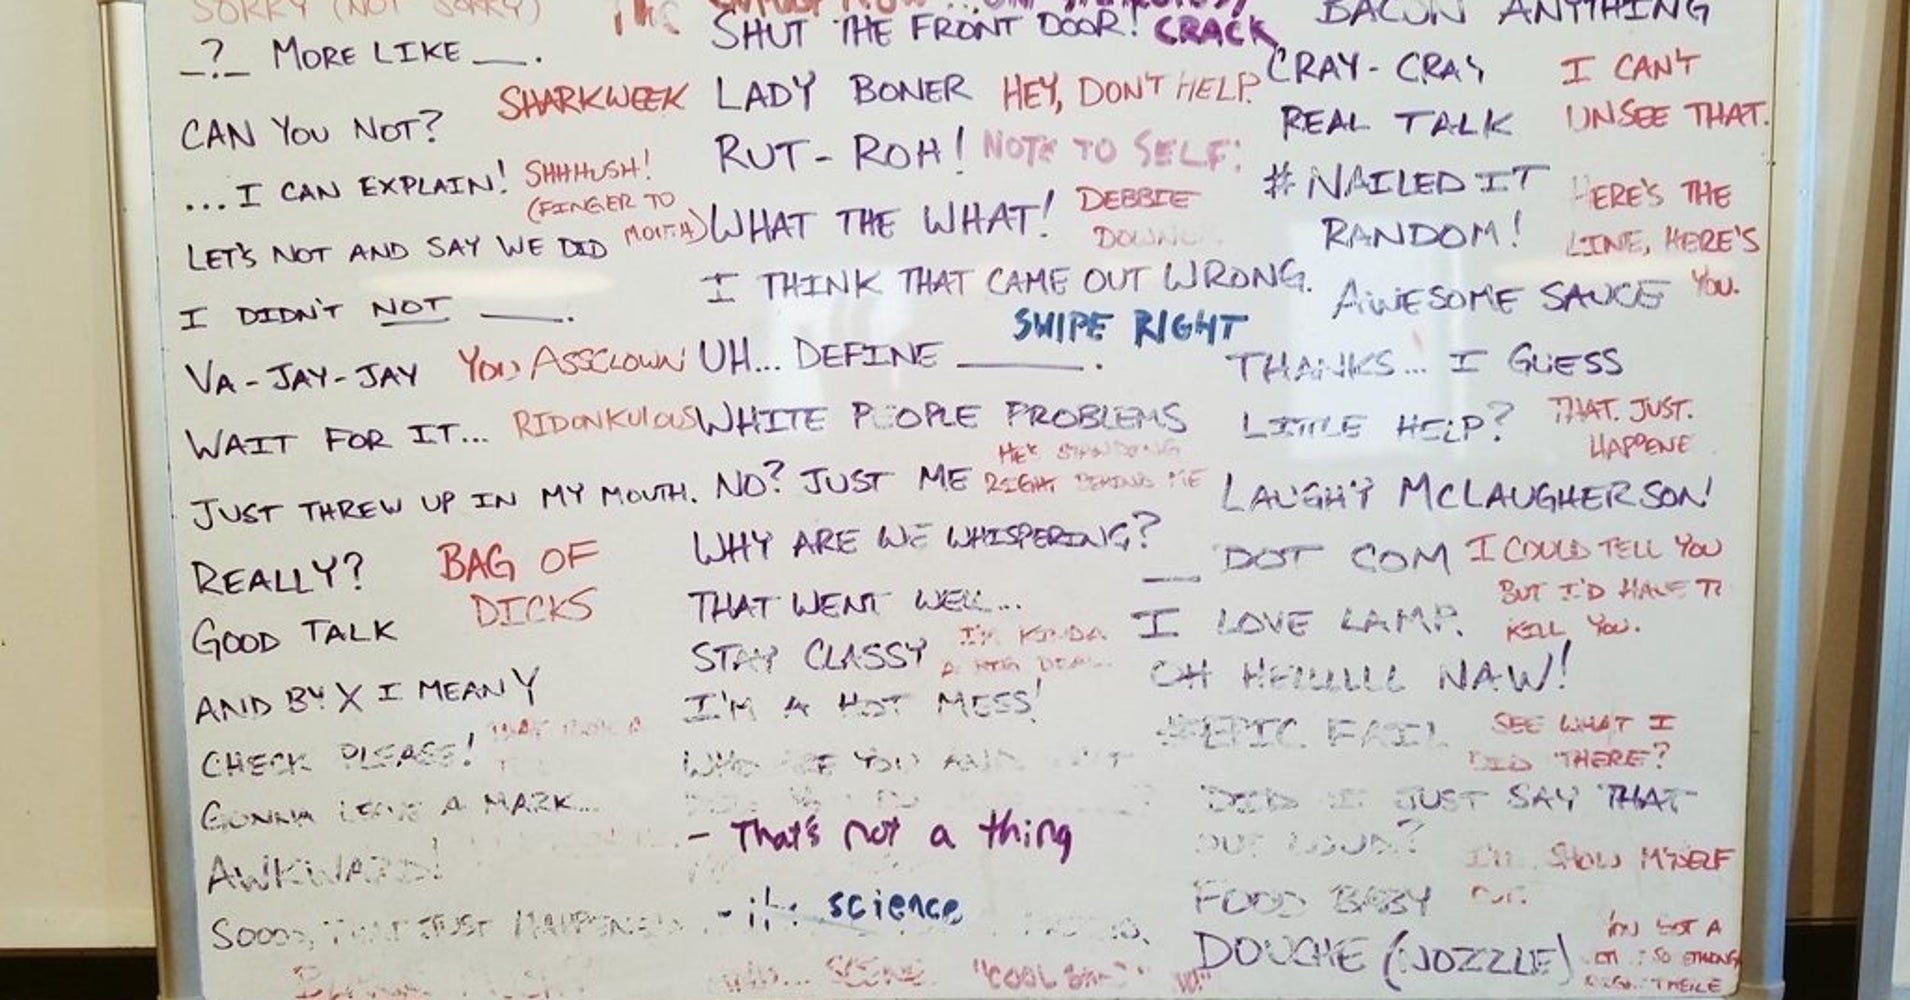 SORRY (NOT SORRY)
_?_ MORE LIKE ___.
CAN YOU NOT?
SHARKWEEK
...I CAN EXPLAIN!
SHHHUSH!
(FINGER TO
MOUTH)
LET'S NOT AND SAY WE DID
I DIDN'T NOT ____.
VA-JAY-JAY
YOU ASSCLOWN
WAIT FOR IT...
RIDONKULOUS
JUST THREW UP IN MY MOUTH.
REALLY?
BAG OF
DICKS
GOOD TALK
AND BY X I MEAN Y
CHECK PLEASE!
GONNA LEAVE A MARK...
AWKWARD!
SOOOO, THAT JUST HAPPENED
SHUT THE FRONT DOOR!
CRACK
LADY BONER
HEY, DON'T HELP.
RUT-ROH!
NOTE TO SELF:
WHAT THE WHAT!
DEBBIE
DOWN
I THINK THAT CAME OUT WRONG.
SWIPE RIGHT
UH... DEFINE ______.
WHITE PEOPLE PROBLEMS
HE'S STANDING
RIGHT BEHIND ME
NO? JUST ME
WHY ARE WE WHISPERING?
THAT WENT WELL...
STAY CLASSY
I'M KINDA
A BIG DEAL...
I'M A HOT MESS!
WHO ARE YOU AND
- That's not a thing
- science
SCENE
"COOL
BACON ANYTHING
CRAY-CRAY
I CAN'T
UNSEE THAT.
REAL TALK
#NAILED IT
HERE'S THE
LINE, HERE'S
YOU.
RANDOM!
AWESOME SAUCE
THANKS... I GUESS
LITTLE HELP?
THAT. JUST.
HAPPENE
LAUGHY MCLAUGHERSON!
__ DOT COM
I COULD TELL YOU
BUT I'D HAVE TO
KILL YOU.
I LOVE LAMP.
OH HELLLLL NAW!
#EPIC FAIL
SEE WHAT I
DID THERE?
DID I JUST SAY THAT
OUT LOUD?
I'LL SHOW MYSELF
OUT.
FOOD BABY
DOUCHE (NOZZLE)
YOU GOT A
SO STRONG
RIGHT THERE